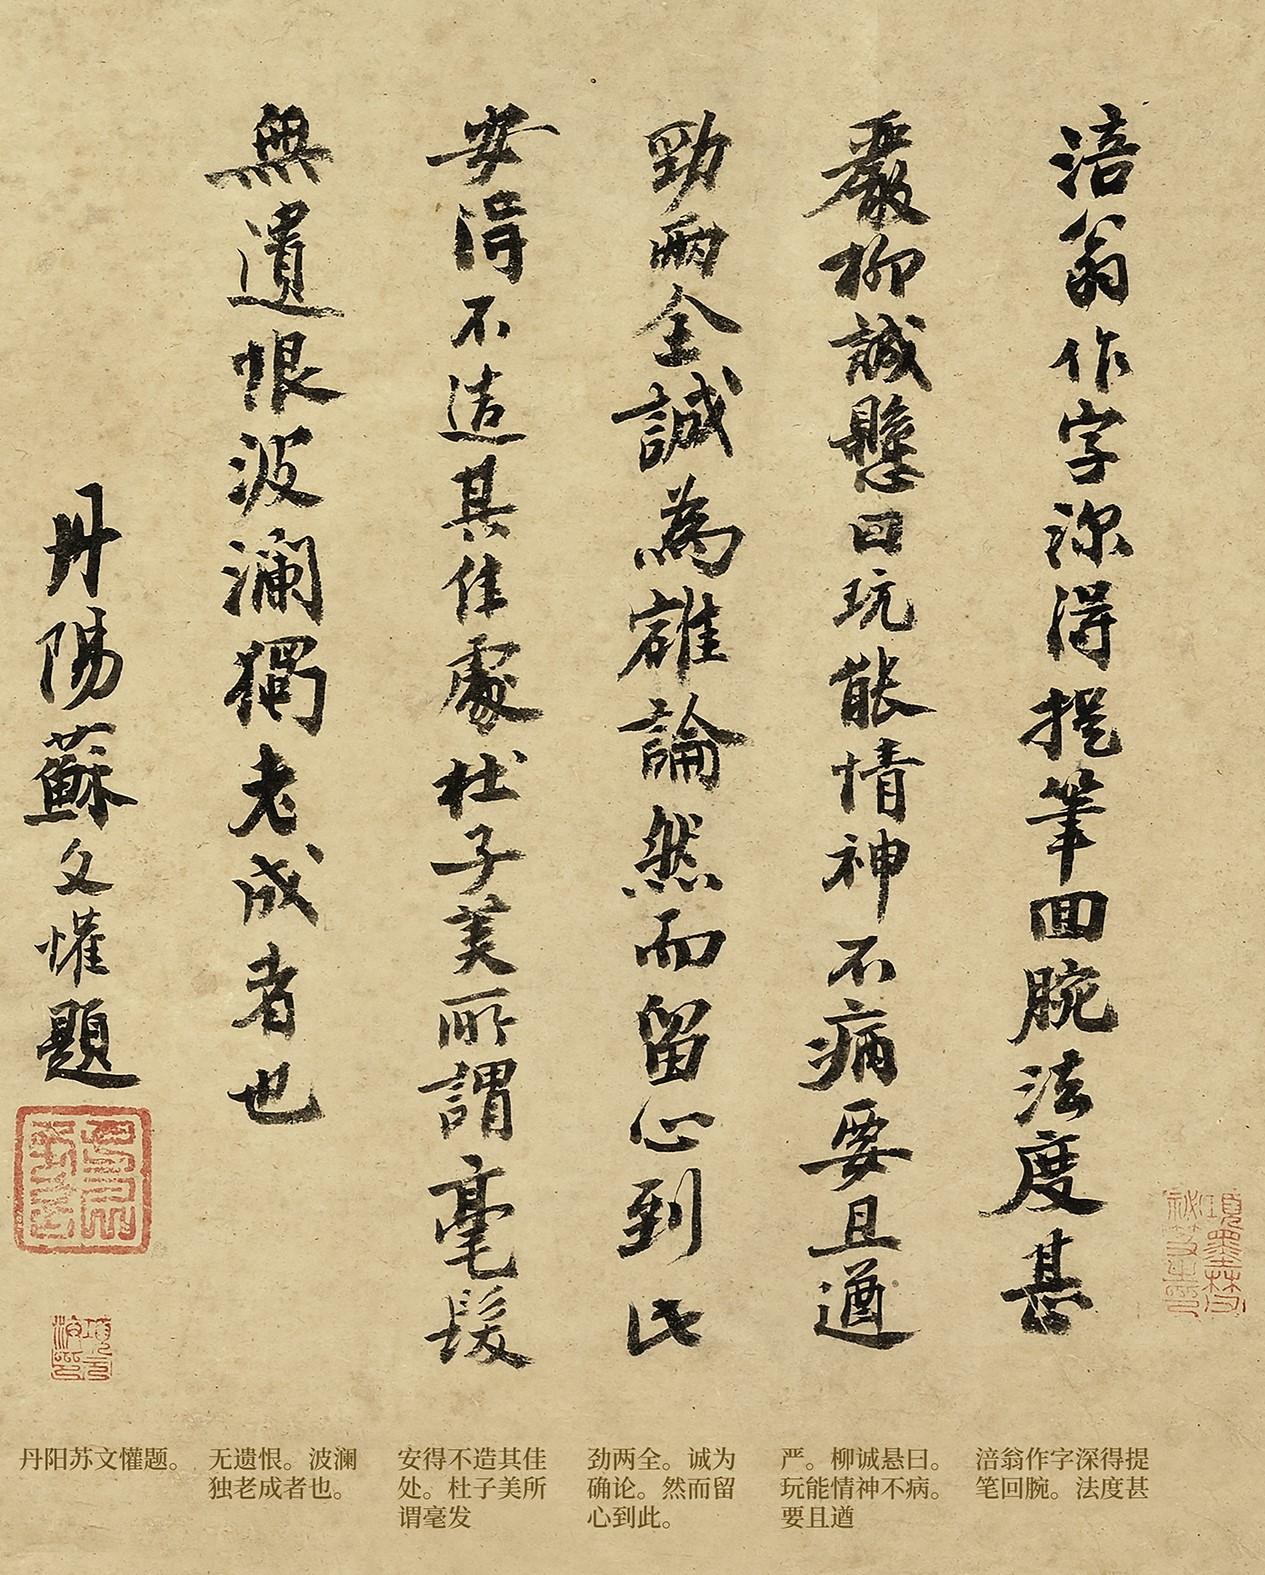 涪翁作字深得提筆回腕法度甚
嚴柳誠懸曰玩能情神不病要且遒
勁兩全誠為確論然而留心到此
安得不造其佳處杜子美所謂毫髮
無遺恨波瀾獨老成者也
丹陽蘇文懽題
項墨林父
祕笈之印
涪翁作字深得提
笔回腕。法度甚
严。柳诚悬曰。
玩能情神不病。
要且遒
劲两全。诚为
确论。然而留
心到此。
安得不造其佳
处。杜子美所
谓毫发
无遗恨。波澜
独老成者也。
丹阳苏文懽题。